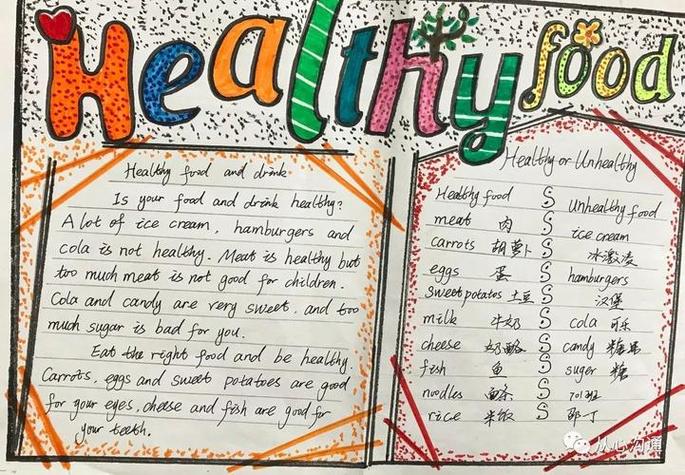 Healthy food
Healthy food and drink
Is your food and drink healthy?
A lot of ice cream, hamburgers and
cola is not healthy. Meat is healthy but
too much meat is not good for children.
Cola and candy are very sweet, and too
much sugar is bad for you.
Eat the right food and be healthy.
Carrots, eggs and sweet potatoes are good
for your eyes, cheese and fish are good for
your teeth.
Healthy or Unhealthy
Healthy food S unhealthy food
meat 肉 S ice cream
carrots 胡萝卜 S 冰激凌
eggs 蛋 S hamburgers
sweet potatoes 土豆 S 汉堡
milk 牛奶 S cola 可乐
cheese 奶酪 S candy 糖果
fish 鱼 S suger 糖
noodles 面条 S
rice 米饭 S
从心沟通